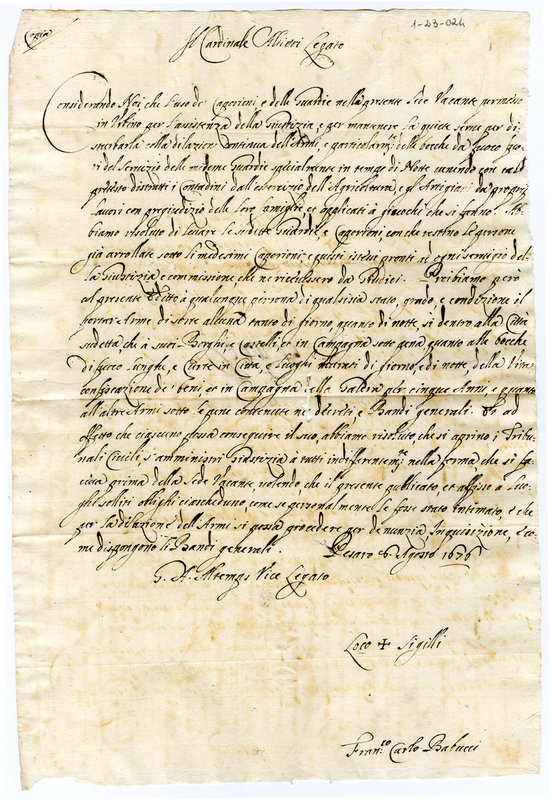 1-23-024
Copia
Il Cardinale Altieri Legato
Considerando Noi che l'uso de Caporioni, e delle Guardie nella presente Sede Vacante permesse
in Urbino per l'assistenza della Giustizia, e per mantenere la quiete serve per di-
sturbarla colla dilazione continua dell'Armi, e particolarm.te delle bocche da fuoco fuo-
ri del servizio delle medeme Guardie specialmente in tempo di Notte venendo con tal
pretesto distratti i Contadini dall'esercizio dell'Agricoltura, e gl'Artigiani da proprij
lavori con pregiudizio delle loro famiglie, et applicati à giochi che si fanno. Ab-
biamo risoluto di levare le sudette Guardie, e Caporioni, con che restino le persone
già arrollate sotto li medesimi Caporioni, e questi istessi pronti ad ogni servigio del-
la Giustizia, e commissione, che ne ricevessero da Giudici. Proibiamo però
col presente Editto à qualunque persona di qualsisia stato, grado, e condizione il
portar Arme di sorte alcuna tanto di giorno, quanto di notte, sì dentro alla Città
sudetta, che à suoi Borghi, e Castelli, et in Campagna sotto pena quanto alle bocche
di fuoco lunghe, e curte in Città, e Luoghi murati di giorno, e di notte, della Vita
confiscazione de' beni, et in Campagna della Galera per cinque Anni, e quanto
all'altre Armi sotto le pene contenute ne' decreti, e Bandi generali. Et ad
effetto che ciascuno possa conseguire il suo, abbiamo risoluto, che si aprino i Tribu-
nali Civili, e s'amministri Giustizia à tutti indifferentem.te nella forma che si fa-
ceva prima della Sede Vacante volendo, che il presente publicato, et affisso a' Luo-
ghi soliti oblighi ciascheduno, come se personalmente le fosse stato intimato, e che
per la dilazione dell'Armi si possa procedere per denunzia, Inquisizione, e co-
me dispongono li Bandi generali. Pesaro 6 Agosto 1676
G. A. Altemps Vice Legato
Loco + Sigilli
Fran.co Carlo Babucci